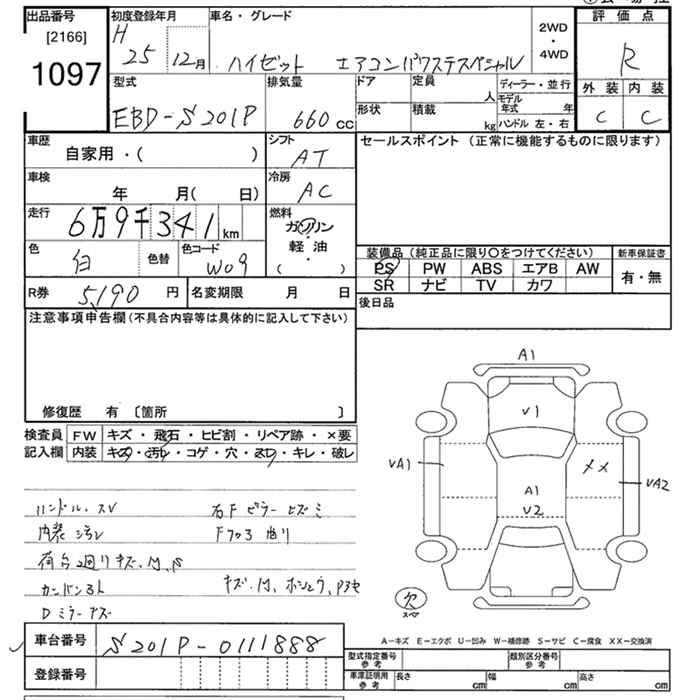 出品番号
[2166]
1097
初度登録年月
H
25 12月
車名・グレード
ハイゼット エアコンパワステスペシャル
2WD
・
4WD
評価点
R
外装 内装
C C
型式
EBD-S201P
排気量
660 cc
ドア 定員
人
形状 積載
kg
ディーラー・並行
モデル
年式 年
ハンドル 左・右
車歴
自家用・( )
シフト
AT
セールスポイント (正常に機能するものに限ります)
車検
年 月( 日)
冷房
AC
走行
6万9千341 km
燃料
ガソリン
・
軽油
( )
色
白
色替
色コード
W09
装備品(純正品に限り〇をつけてください)
PS PW ABS エアB AW
SR ナビ TV カワ
新車保証書
有・無
R券 5,190 円
名変期限 月 日
後日品
注意事項申告欄(不具合内容等は具体的に記入して下さい)
修復歴 有 〔箇所 〕
検査員
記入欄
FW キズ・飛石・ヒビ割・リペア跡・×要
内装 キズ・汚れ・コゲ・穴・スレ・キレ・破レ
ハンドル、スレ
荷台2廻りキズ、M,S
Dミラーキズ
右Fピラーヒズミ
A1
V1
VA1
A1
V2
VA2
欠
スペア
A-キズ E-エクボ U-凹み W-補修跡 S-サビ C-腐食 XX-交換済
車台番号 S201P-0111888
登録番号
型式指定番号
参考
類別区分番号
参考
車庫証明用
参考
長さ cm 幅 cm 高さ cm